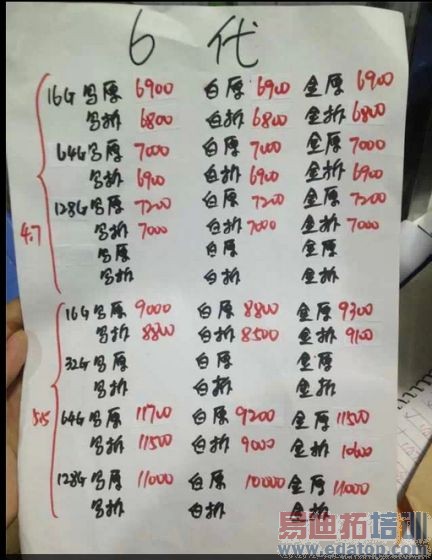 6 代
16G 乌原 6900 白原 6900 金原 6900
乌拆 6800 白拆 6800 金拆 6800
64G 乌原 7000 白原 7000 金原 7000
乌拆 6900 白拆 6900 金拆 6900
4.7 128G 乌原 7200 白原 7200 金原 7200
乌拆 7000 白拆 7000 金拆 7000
乌原 白原 金原
乌拆 白拆 金拆
16G 乌原 9000 白原 8800 金原 9300
乌拆 8800 白拆 8500 金拆 9100
32G 乌原 白原 金原
乌拆 白拆 金拆
5.5 64G 乌原 11700 白原 9200 金原 11500
乌拆 11500 白拆 9000 金拆 10600
128G 乌原 11000 白原 10000 金原 11000
乌拆 白拆 金拆
易迪拓培训
www.edatop.com